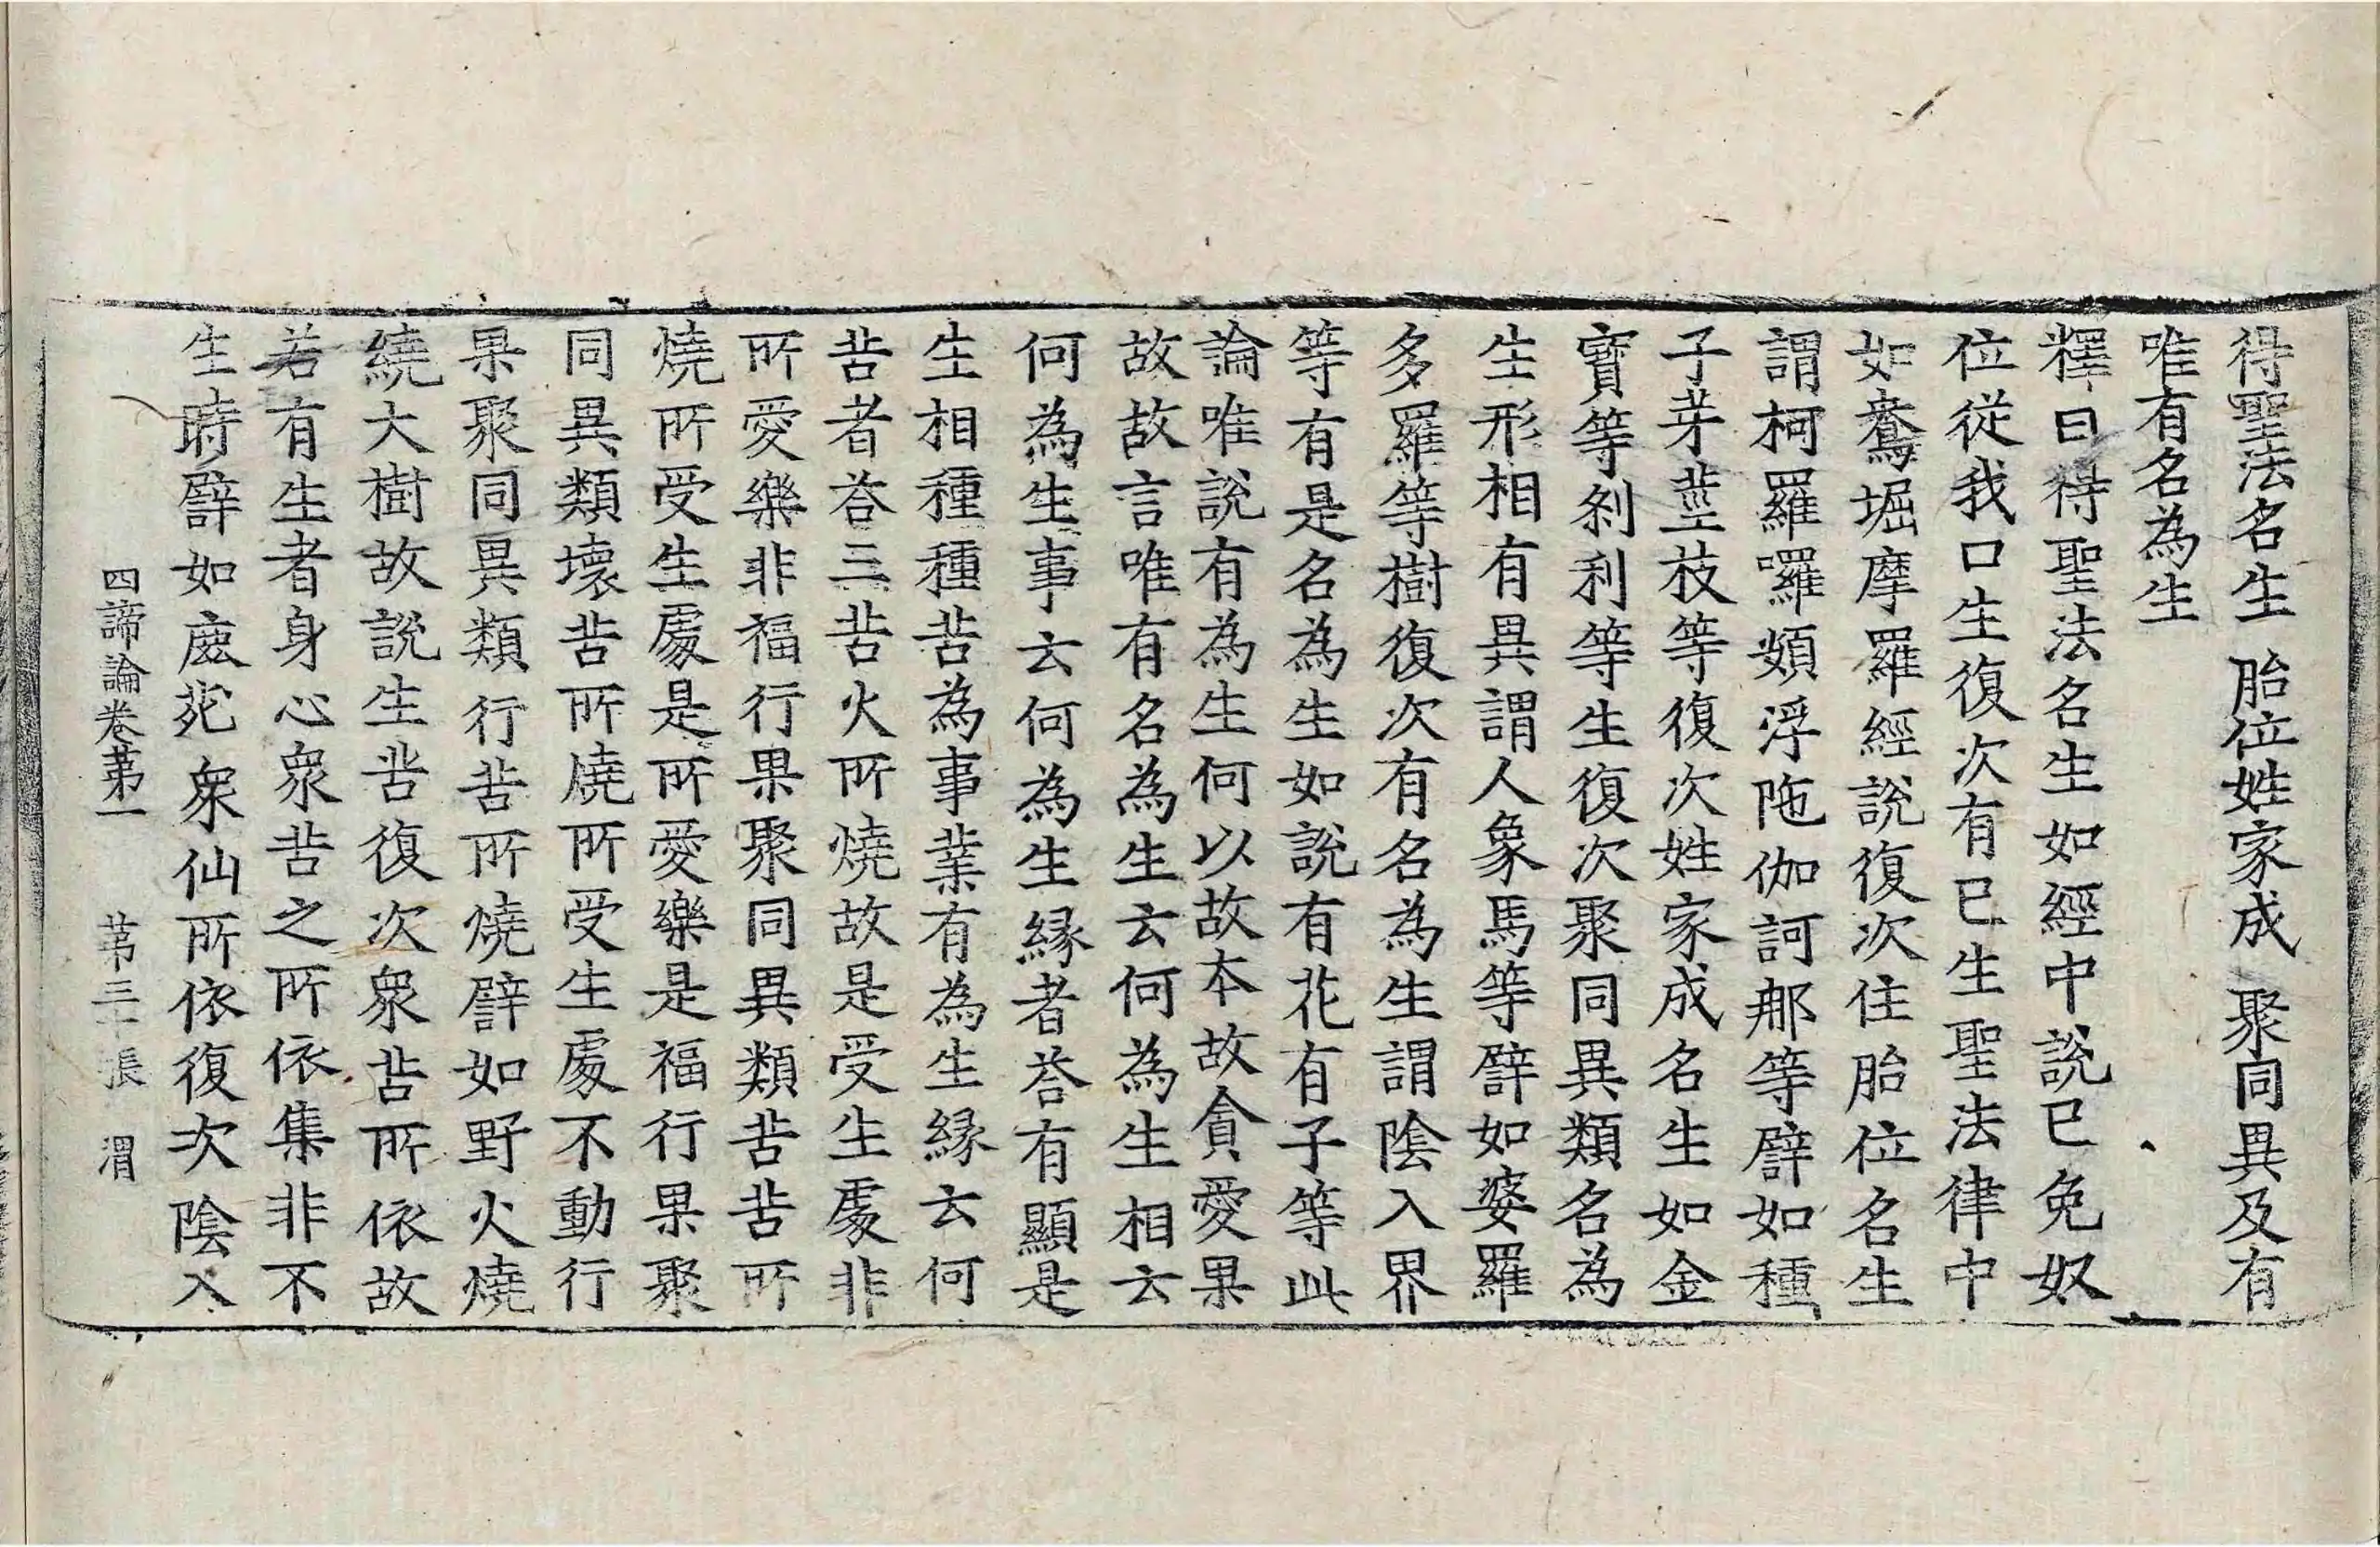 得聖法名生　胎位姓家成　聚同異及有
唯有名為生
釋曰得聖法名生如經中說已免奴
位從我口生復次有已生聖法律中
如鴦堀摩羅經說復次住胎位名生
謂柯羅囉頞浮陁伽訶那等譬如種
子芽莖枝等復次姓家成名生如金
寶等剎利等生復次聚同異類名為
生形相有異謂人象馬等譬如婆羅
多羅等樹復次有名為生謂陰入界
等有是名為生如說有花有子等此
論唯說有為生何以故本故貪愛果
故故言唯有名為生云何為生相云
何為生事云何為生緣者荅有顯是
生相種種苦為事業有為生緣云何
苦者荅三苦火所燒故是受生處非
所愛樂非福行果聚同異類苦苦所
燒所受生處是所愛樂是福行果聚
同異類壞苦所燒所受生處不動行
果聚同異類行苦所燒譬如野火燒
繞大樹故說生苦復次衆苦所依故
若有生者身心衆苦之所依集非不
生時譬如鹿苑衆仙所依復次陰入
四諦論卷苐一　苐三張　渭